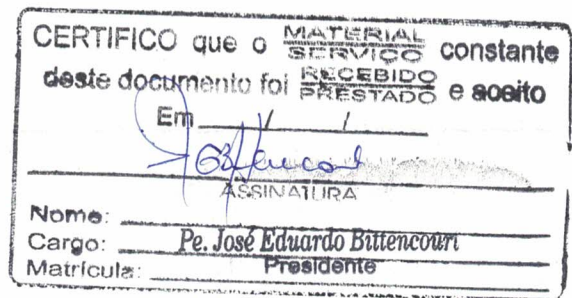 CERTIFICO que o MATERIAL SERVIÇO constante
deste documento foi RECEBIDO PRESTADO e aceito
Em / /
ASSINATURA
Nome:
Cargo: Pe. José Eduardo Bittencourt
Matrícula: Presidente